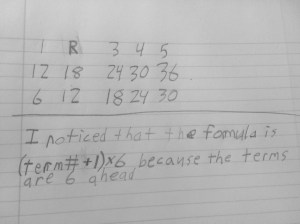 1 R 3 4 5
12 18 24 30 36
6 12 18 24 30
I noticed that the formula is
(term# +1)×6 because the terms
are 6 ahead